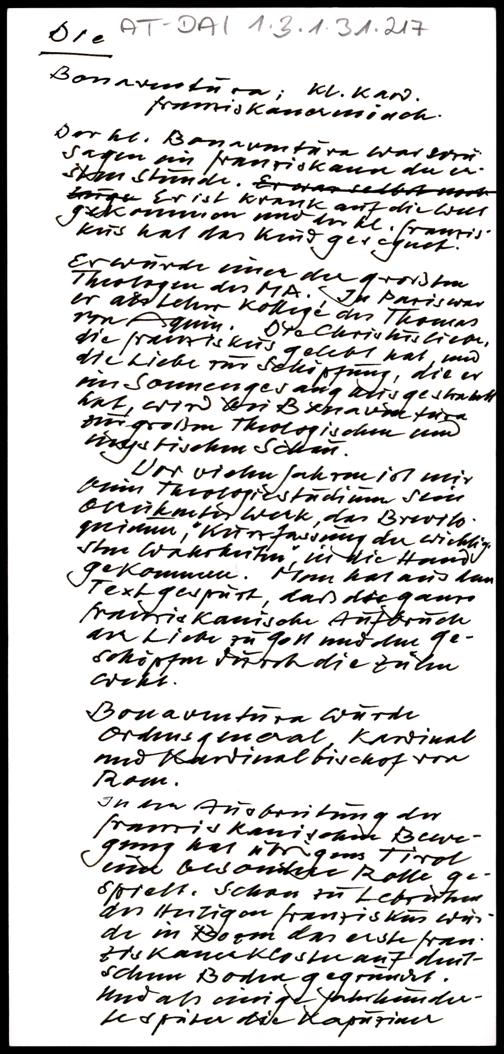 Die AT-DAI 1.3.1.31.217
Bonaventura, hl. Kard.
Franziskanermönch.
Der hl. Bonaventura war sozu
sagen ein Franziskaner der er-
sten Stunde. Er war selbst
Er ist krank auf die Welt
gekommen und der hl. Franzis-
kus hat das Kind gesegnet.
Er wurde einer der großten
Theologen des MA. In Paris war
er als Lehrer Kollege des Thomas
von Aquin. Die Christusliebe,
die Franziskus gelebt hat, und
die Liebe zur Schöpfung, die er
im Sonnengesang ausgestrahlt
hat, wird bei Bonaventura
zur großen Theologischen und
mystischen Schau.
Vor vielen Jahren ist mir
beim Theologiestudium sein
Werk, das Brevilo-
quium, "Kurzfassung der wichtig-
sten Wahrheiten", in die Hand
gekommen. Man hat aus dem
Text gespürt, daß der ganze
franziskanische Aufbruch
der Liebe zu Gott und den Ge-
schöpfen durch die Zeilen
weht.
Bonaventura wurde
Ordensgeneral, Kardinal
und Kardinalbischof von
Rom.
In der Ausbreitung der
franziskanischen Bewe-
gung hat übrigens Tirol
eine besondere Rolle ge-
spielt. Schon zu Lebzeiten
des Heiligen Franziskus wur-
de in Bozen das erste Fran-
ziskanerkloster auf deut-
schem Boden gegründet.
Und als einige Jahrhunder-
te später die Kapuziner